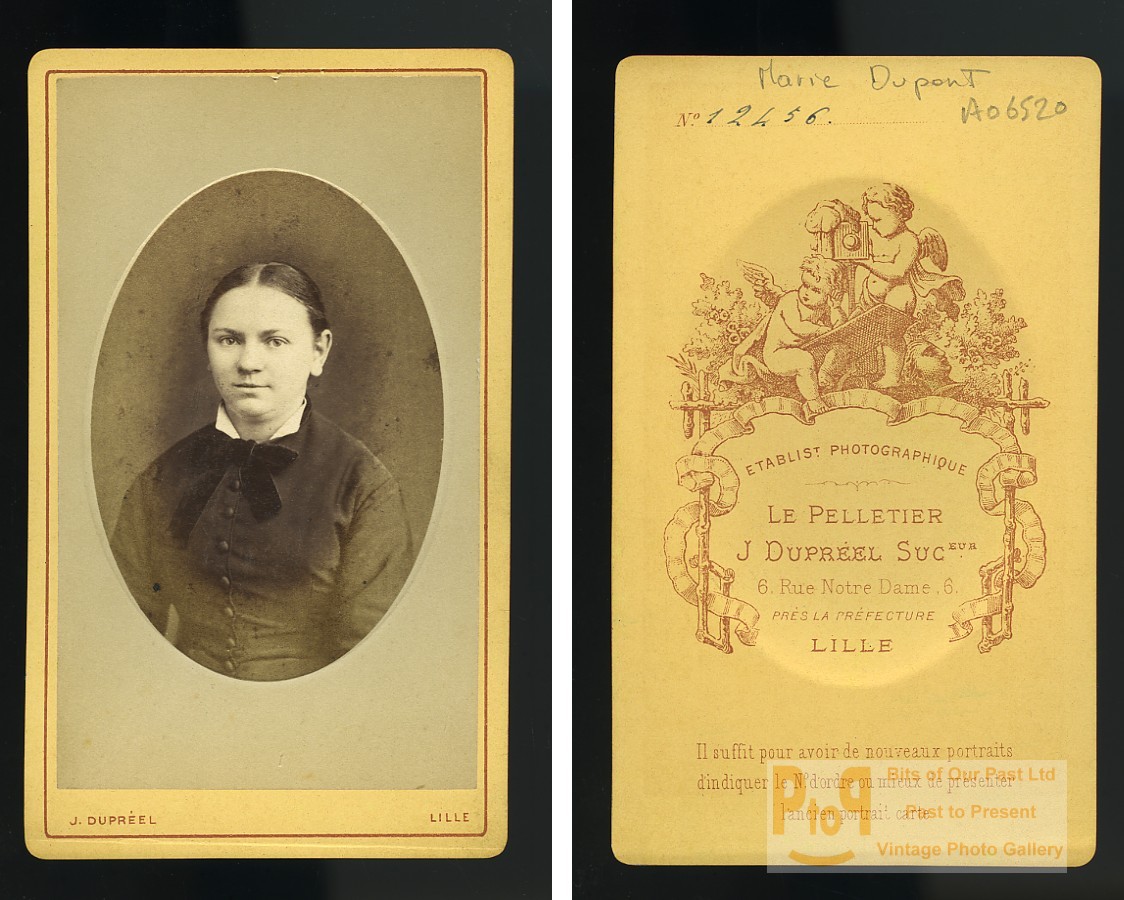 J. DUPRÉEL
LILLE
Marie Dupont
Nº 12456.
A06520
ETABLIST PHOTOGRAPHIQUE
LE PELLETIER
J DUPRÉEL SUCEUR
6. Rue Notre Dame. 6.
PRÈS LA PRÉFECTURE
LILLE
Il suffit pour avoir de nouveaux portraits
d'indiquer le Nº d'ordre ou mieux de présenter
l'ancien portrait carte
PtoP
Bits of Our Past Ltd
Past to Present
Vintage Photo Gallery